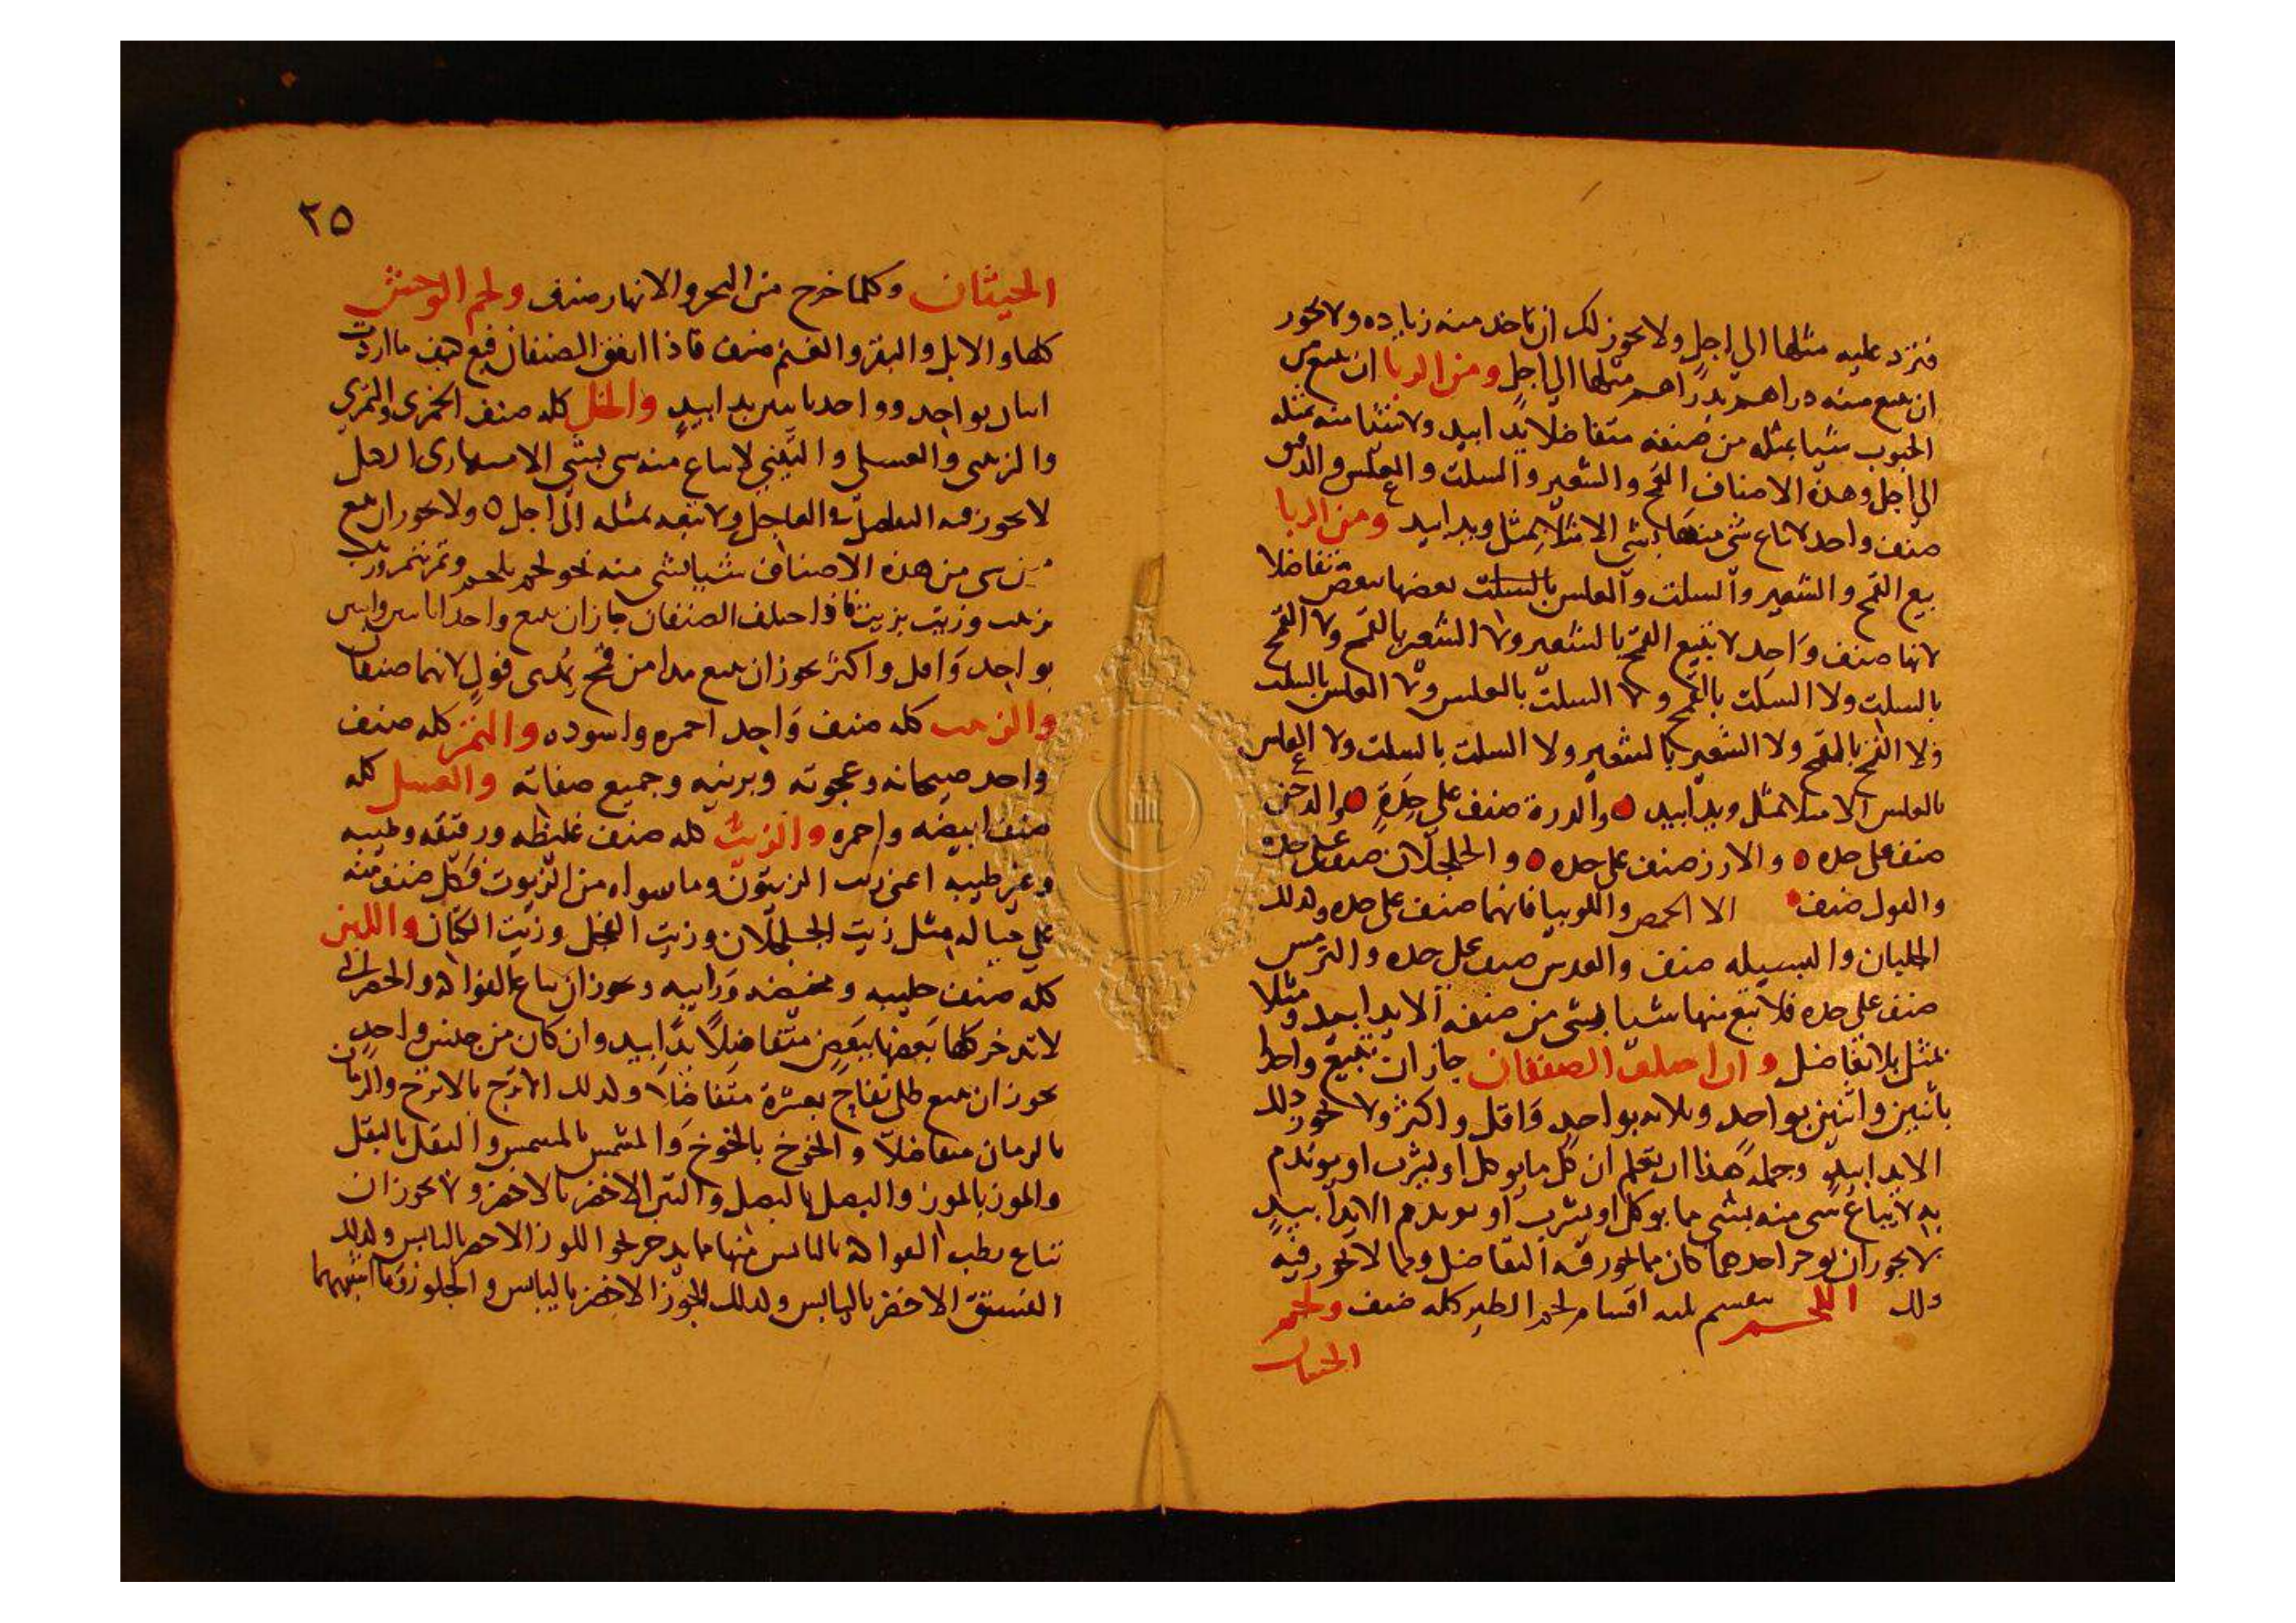 فترد عليه مثلها الي اجل ولا يجوز لك ان تاخذ منه زياده ولا يجوز
ان تبيع منه دراهم بدراهم مثلها الي اجل ومن الربا ان تبيع من
الحبوب شيا بمثله من صنفه متفاضلا يدا بيد ولا شيا منه بمثله
الي اجل وهذه الاصناف القمح والشعير والسلت والعلس والدقيق
صنف واحد لا تباع شي منها بشي الا مثلا بمثل ويدا بيد ومن الربا
بيع القمح والشعير والسلت والعلس بالسلت بعضها ببعض متفاضلا
لانها صنف واحد لا تبيع القمح بالشعير ولا الشعير بالقمح ولا القمح
بالسلت ولا السلت بالقمح ولا السلت بالعلس ولا العلس بالسلت
ولا القمح بالقمح ولا الشعير بالشعير ولا السلت بالسلت ولا العلس
بالعلس الا مثلا بمثل ويدا بيد والدرة صنف علي حدة والدخن
صنف علي حده والارز صنف علي حده والجلجلان صنف علي حده
والفول صنف الا الحمص واللوبيا فانهما صنف علي حده وكذلك
الجلبان والبسيله صنف والعدس صنف علي حده والترمس
صنف علي حده فلا تبع منها شيا بشي من صنفه الا يدا بيد ومثلا
بمثل بلا تفاضل وان اختلف الصنفان جاز ان تبيع واحدا
باثنين واثنين بواحد وثلاثه بواحد واقل واكثر ولا يجوز ذلك
الا يدا بيد وجملة هذا ان تعلم ان كل ما يوكل او يشرب او يوتدم
به لا يباع شي منه بشي ما يوكل او يشرب او يوتدم الا يدا بيد
لا يجوز ان يوخر احدهما كان مما يجوز فيه التفاضل ومما لا يجوز فيه
ذلك اللحم ينقسم ثلثه اقسام لحم الطير كله صنف ولحم
الحيتان
٢٥
الحيتان وكلما خرج من البحر والانهار صنف ولحم الوحش
كلها والابل والبقر والغنم صنف فاذا اتفق الصنفان فبع كيف ما اردت
اثنان بواحد وواحد باثنين يدا بيد والخل كله صنف الخمري والتمري
والزبيبي والعسلي والتيني لا يباع منه شي بشي الا
لا يجوز فيه التفاضل في العاجل ولا تبعه بمثله الي اجل ٥ ولا يجوز ان تبيع
من شي من هذه الاصناف شيا بشي منه نحو لحم بلحم وتمر بتمر وزبيب
بزبيب وزيت بزيت فاذا اختلف الصنفان جاز ان تبيع واحدا باثنين واثنين
بواحد واقل واكثر يجوز ان تبيع مدا من قمح بمدي فول لانهما صنفان
والزبيب كله صنف واحد احمره واسوده والتمر كله صنف
واحد صيحانه وعجوته وبرنيه وجميع صفاته والعسل كله
صنف ابيضه واحمره والزيت كله صنف غليظه ورقيقه وطيبه
وغير طيبه اعني زيت الزيتون وما سواه من الزيوت فكل صنف منه
علي حياله مثل زيت الجلجلان وزيت الفجل وزيت الكتان واللبن
كله صنف حليبه ومخيضه ورايبه ويجوز ان تباع الفواكه والخضر التي
لا تدخر كلها بعضها ببعض متفاضلا يدا بيد وان كان من جنس واحد
يجوز ان تبيع رطل تفاح بعشرة متفاضلا وكذلك الاترج بالاترج والرمان
بالرمان متفاضلا والخوخ بالخوخ والمشمس بالمشمس والبقل بالبقل
والموز بالموز والبصل بالبصل والتين الاخضر بالاخضر ولا يجوز ان
تباع رطب الفواكه باليابس منها مما يدخر نحو اللوز الاخضر باليابس وكذلك
الفستق الاخضر باليابس وكذلك الجوز الاخضر باليابس والجلوز وما اشبههما